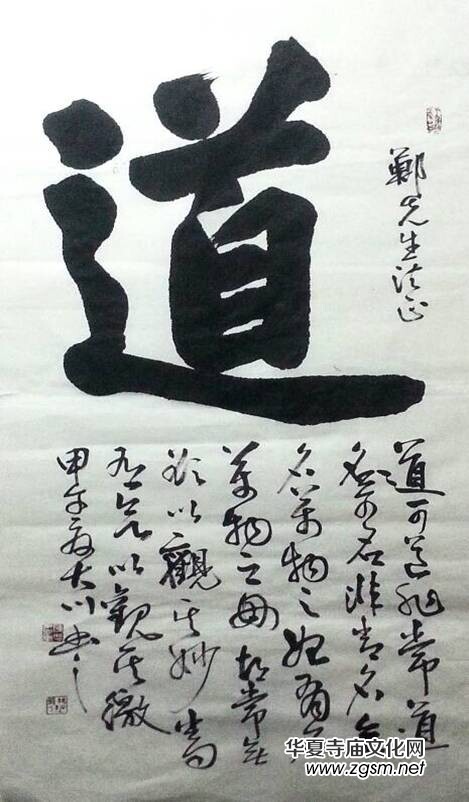 道
鄭先生法正
道可道非常道
名可名非常名无
名萬物之始有名
萬物之母故常无
欲以觀其妙常
有欲以觀其徼
甲午 大川书之
华夏寺庙文化网
www.zgsm.net